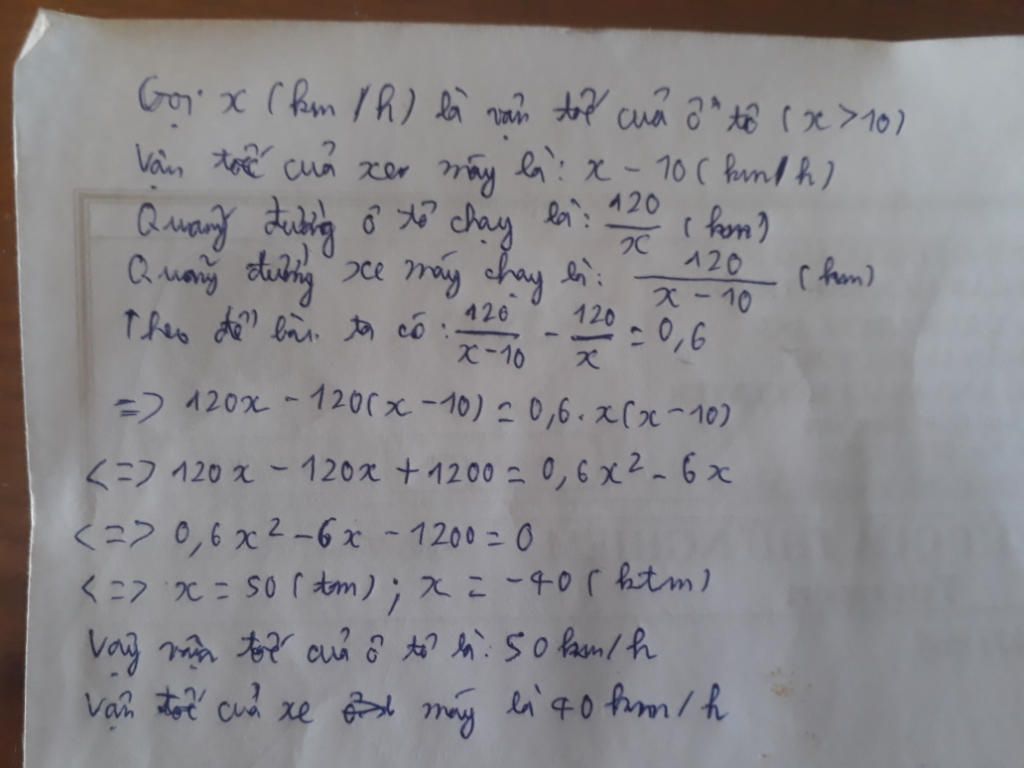 Gọi x (km/h) là vận tốc của ô tô (x > 10)
Vận tốc của xe máy là: x - 10 (km/h)
Quãng đường ô tô chạy là: 120/x (km)
Quãng đường xe máy chạy là: 120/(x - 10) (km)
Theo đề bài ta có: 120/(x - 10) - 120/x = 0,6
=> 120x - 120(x - 10) = 0,6. x(x - 10)
<=> 120x - 120x + 1200 = 0,6x² - 6x
<=> 0,6x² - 6x - 1200 = 0
<=> x = 50 (tm); x = -40 (ktm)
Vậy vận tốc của ô tô là: 50 km/h
Vận tốc của xe máy là 40 km/h